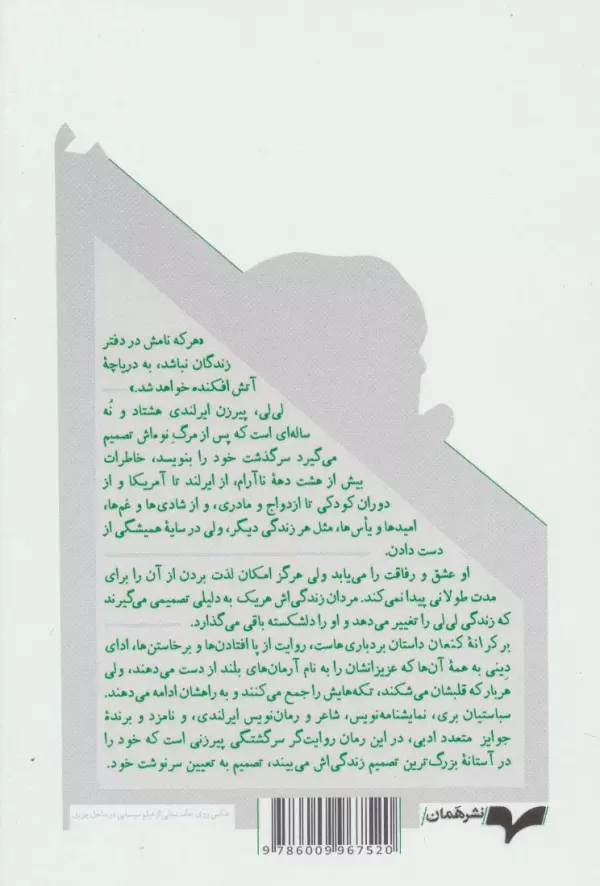 «هرکه نامش در دفتر
زندگان نباشد، به دریاچهٔ
آتش افکنده خواهد شد.»
لی‌لی، پیرزن ایرلندی هشتاد و نُه
ساله‌ای است که پس از مرگِ نوه‌اش تصمیم
می‌گیرد سرگذشت خود را بنویسد، خاطرات
بیش از هشت دههٔ ناآرام، از ایرلند تا آمریکا و از
دوران کودکی تا ازدواج و مادری، و از شادی‌ها و غم‌ها،
امیدها و یأس‌ها، مثل هر زندگی دیگر، ولی در سایهٔ همیشگی از
دست دادن.
او عشق و رفاقت را می‌یابد ولی هرگز امکان لذت بردن از آن را برای
مدت طولانی پیدا نمی‌کند. مردان زندگی‌اش هریک به دلیلی تصمیمی می‌گیرند
که زندگی لی‌لی را تغییر می‌دهد و او را دلشکسته باقی می‌گذارد.
بر کرانهٔ کنعان داستان بردباری‌هاست، روایت از پا افتادن‌ها و برخاستن‌ها، ادای
دِینی به همهٔ آن‌ها که عزیزانشان را به نام آرمان‌های بلند از دست می‌دهند، ولی
هربار که قلبشان می‌شکند، تکه‌هایش را جمع می‌کنند و به راهشان ادامه می‌دهند.
سباستیان بری، نمایشنامه‌نویس، شاعر و رمان‌نویس ایرلندی، و نامزد و برندهٔ
جوایز متعدد ادبی، در این رمان روایت‌گر سرگشتگی پیرزنی است که خود را
در آستانهٔ بزرگ‌ترین تصمیم زندگی‌اش می‌بیند، تصمیم به تعیین سرنوشت خود.
عکس روی جلد: نمایی از فیلم سینمایی
نشر هَمان
9 786009 967520